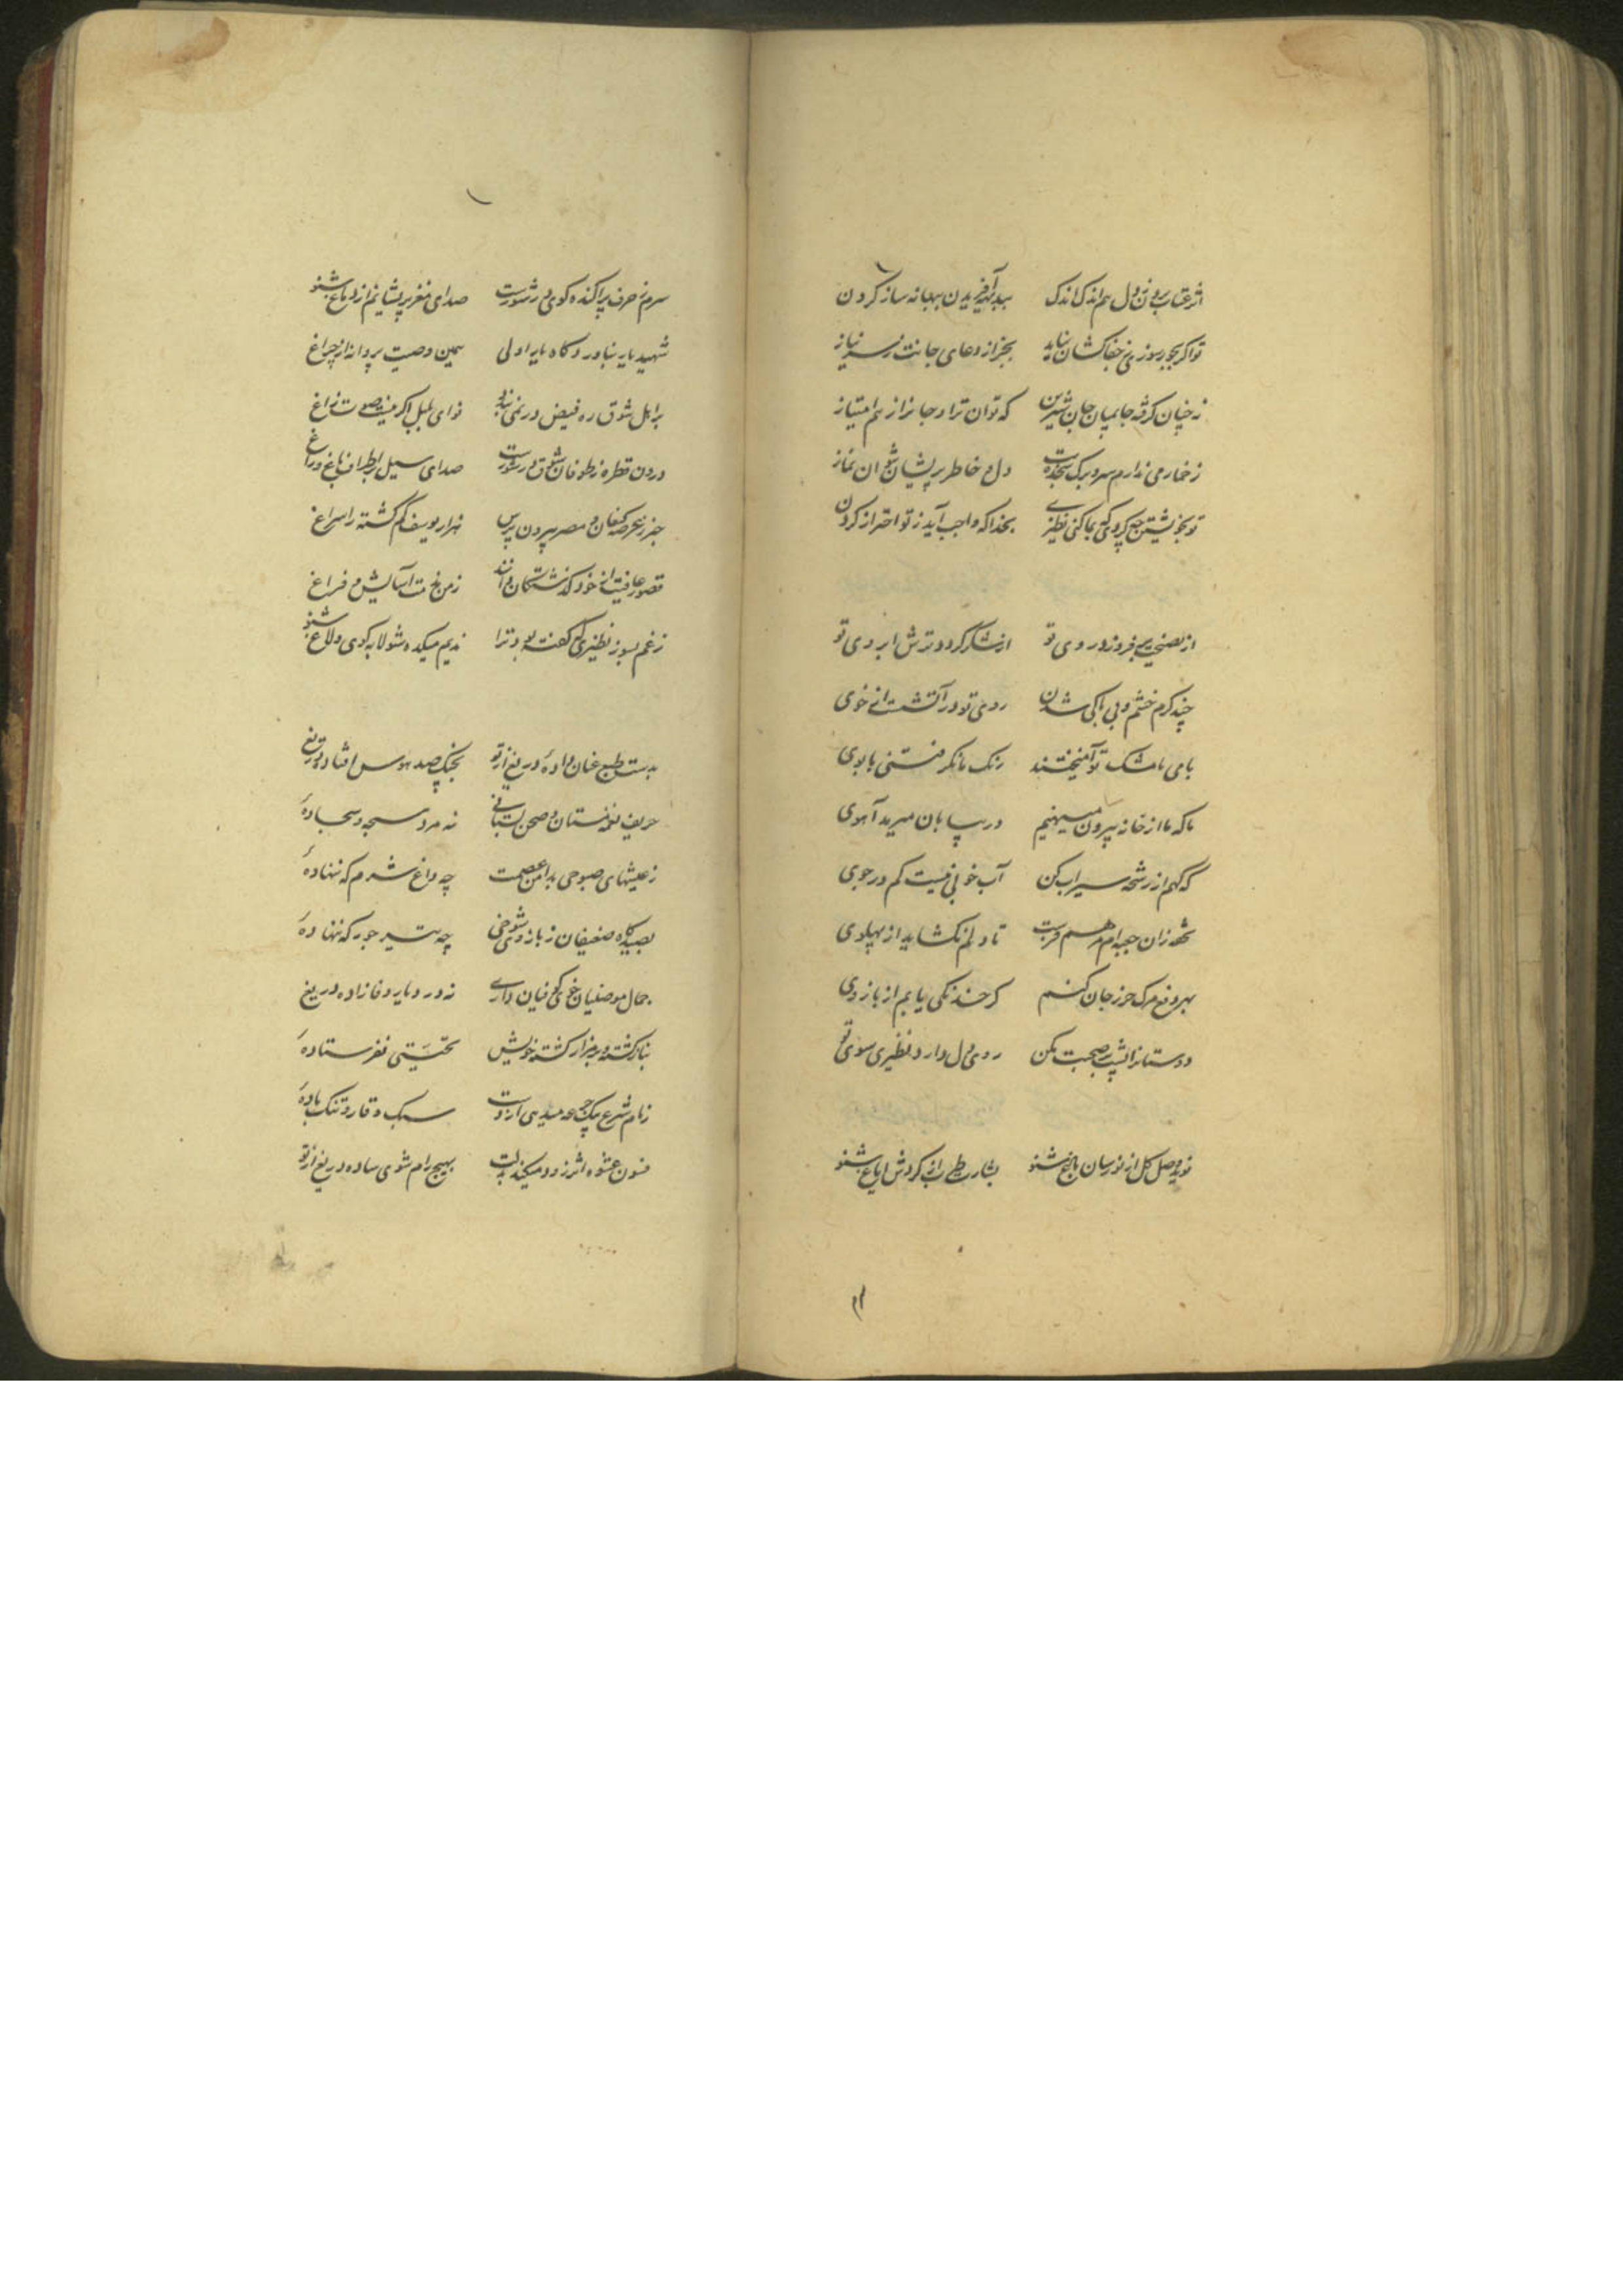 اثر عتاب بردن ز دل هم اندک اندک ببدیهه آفریدن ببهانه ساز کردن
تو اگر بجور سوزی ز جفاکشان نیاید بجز از دعای جانت ز سر نیاز
نه چنان گرفته جا بمیان جان شیرین که توان ترا و جانرا ز هم امتیاز
ز خمار می ندارم سر و برگ سجده دل و خاطر پریشان نماز
تو بخویشتن چه کردی که بما کنی نظیری بخدا که واجب آید ز تو احتراز کردن
از نصیحت برفروزد روی تو از شکر گردد ترش ابروی تو
چند گرم خشم و بی باکی شدن روی تو در آتشست از خوی
با می ما مشک تو آمیختند رنگ ما نگرفتی با بوی
ما که ما از خانه بیرون مینهیم در بیابان میرمد آهوی
که گهم از رشحه سیراب کن آب خوبی نیست کم در جوی
تا دلم نگشاید از پهلوی
بهر دفع مرگ حرز جان کنم گر خدنگی یابم از بازوی
دوستانرا شب صحبت مکن روی دل دارد نظیری سوی تو
نوید وصل گل از نورسان باغ شنو بشارت طرب از گردش ایاغ شنو
سرم ز حرف پراکنده گوی در شورست صدای مغز پریشانیم از دماغ شنو
شهید یار نیاورد گاه یار اولی همین وصیت پروانه از چراغ
بر اهل شوق ره فیض در نمی بندد نوای بلبل اگر نیست صوت زاغ
درون قطره ز طوفان شوق در شورست صدای سیل باطراف باغ و راغ
خبر ز عرصه کنعان و مصر بیرون پرس هزار یوسف گم گشته را سراغ
قصور عافیت از خود گذشتگان دانند ز من آسایش و فراغ
ز غم بسوز نظیری که گفته بود ترا ندیم میکده شو لابه گوی و لاغ شنو
بدست طبع عنان داده دریغ از تو بچنگ صد هوس افتاده دریغ
حریف نغمه مستان و صحن بستانی نه مرد سبحه و سجاده
ز عیشهای صبوحی بدامن عصمت چه داغ شرم که ننهاده
بصیدگاه ضعیفان ز بازوی شوخی چه تیر جور که ننهاده
جمال موصلیان خوی کوفیان داری نه در دیار وفا زاده دریغ
بناز کشته و بر مزار کشته خویش تحیتی نفرستاده
زمام شرع بیک جرعه میدهی از دست سبک وقار و تنک باده
فسون عشوه اثر زود میکند بدلت بهیچ رام شوی ساده دریغ از تو